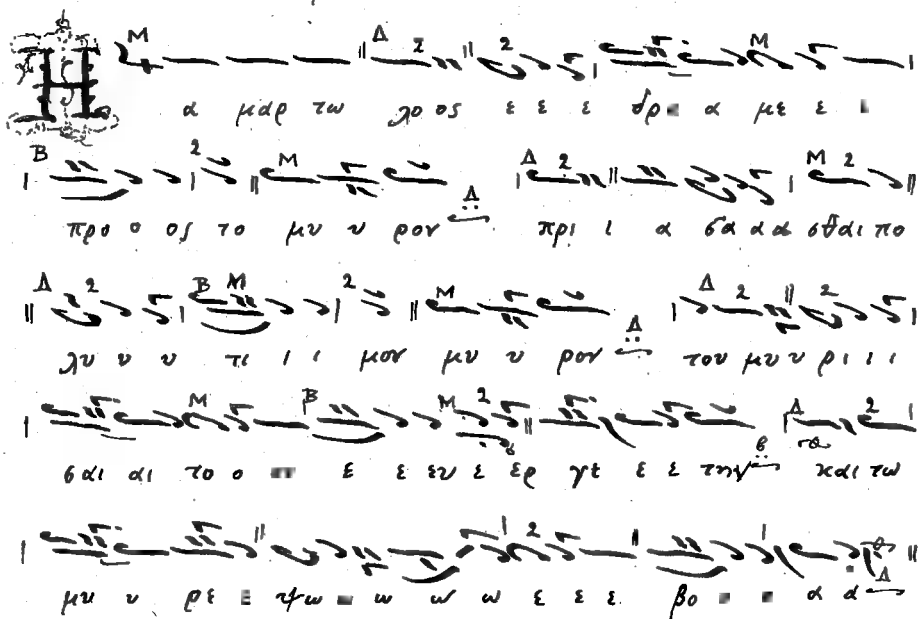 Η α μαρ τω λο ος ε ε ε δρ α με ε ι
προ ο ος το μυ υ ρον πρι ι α σα α α σθαι πο
λυ υ υ τι ι ι μον μυ υ ρον του μυ υ ρι ι ι
σαι αι το ο ε ε ευ ε ερ γε ε ε την και τω
μυ υ ρε ε ψω ω ω ω ε ε ε βο α α